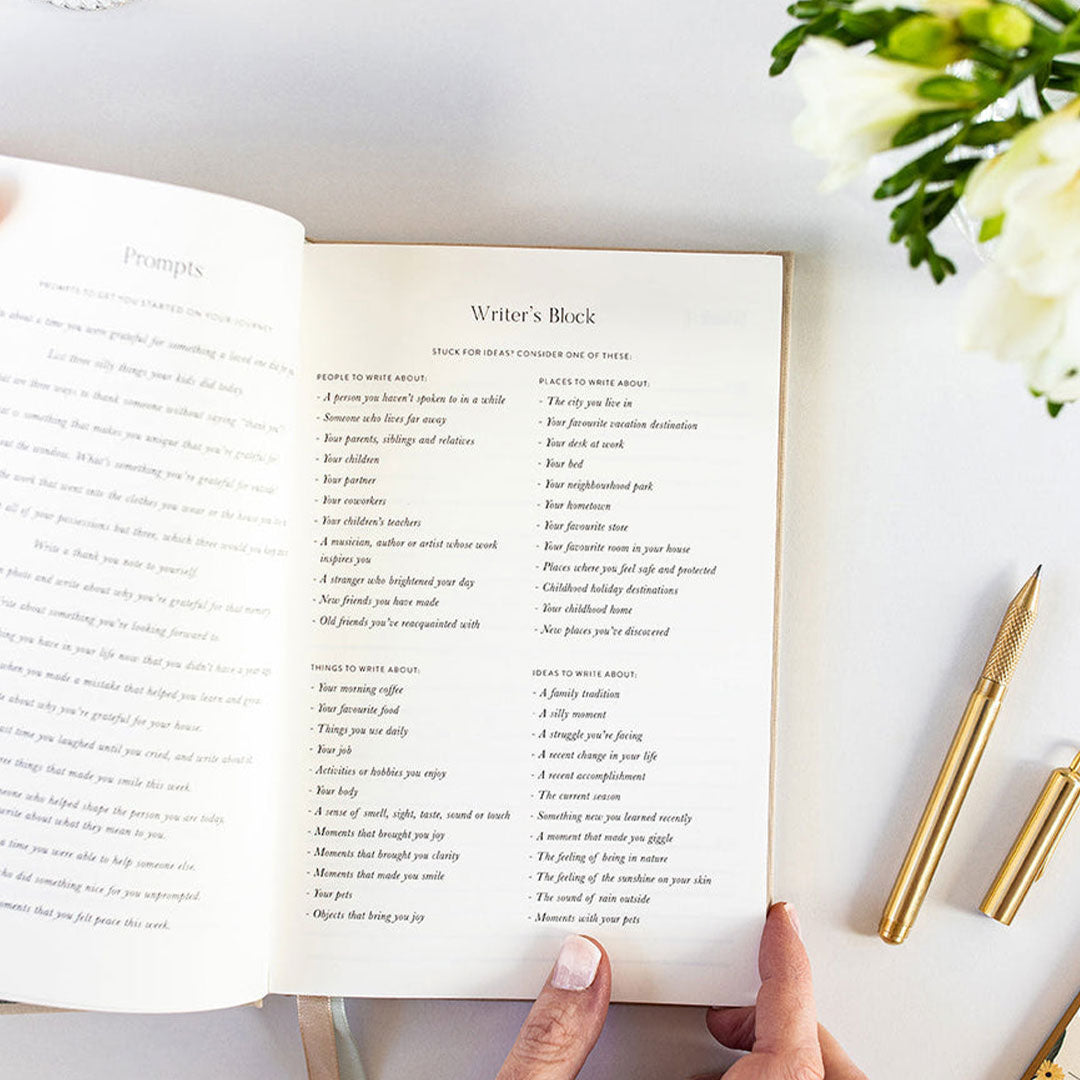 Prompts
PROMPTS TO GET YOU STARTED ON YOUR JOURNEY
about a time you were grateful for something a loved one did for you
List three silly things your kids did today.
are three ways to thank someone without saying "thank you"?
is something that makes you unique that you're grateful for
out the window. What's something you're grateful for outside?
the work that went into the clothes you wear or the house you
all of your possessions but three, which three would you keep
Write a thank you note to yourself.
photo and write about why you're grateful for that memory.
Write about something you're looking forward to.
you have in your life now that you didn't have a year ago
when you made a mistake that helped you learn and grow.
about why you're grateful for your house.
last time you laughed until you cried, and write about it.
three things that made you smile this week.
someone who helped shape the person you are today,
write about what they mean to you.
a time you were able to help someone else.
who did something nice for you unprompted.
moments that you felt peace this week.
Writer's Block
STUCK FOR IDEAS? CONSIDER ONE OF THESE:
PEOPLE TO WRITE ABOUT:
- A person you haven't spoken to in a while
- Someone who lives far away
- Your parents, siblings and relatives
- Your children
- Your partner
- Your coworkers
- Your children's teachers
- A musician, author or artist whose work
inspires you
- A stranger who brightened your day
- New friends you have made
- Old friends you've reacquainted with
PLACES TO WRITE ABOUT:
- The city you live in
- Your favourite vacation destination
- Your desk at work
- Your bed
- Your neighbourhood park
- Your hometown
- Your favourite store
- Your favourite room in your house
- Places where you feel safe and protected
- Childhood holiday destinations
- Your childhood home
- New places you've discovered
THINGS TO WRITE ABOUT:
- Your morning coffee
- Your favourite food
- Things you use daily
- Your job
- Activities or hobbies you enjoy
- Your body
- A sense of smell, sight, taste, sound or touch
- Moments that brought you joy
- Moments that brought you clarity
- Moments that made you smile
- Your pets
- Objects that bring you joy
IDEAS TO WRITE ABOUT:
- A family tradition
- A silly moment
- A struggle you're facing
- A recent change in your life
- A recent accomplishment
- The current season
- Something new you learned recently
- A moment that made you giggle
- The feeling of being in nature
- The feeling of the sunshine on your skin
- The sound of rain outside
- Moments with your pets